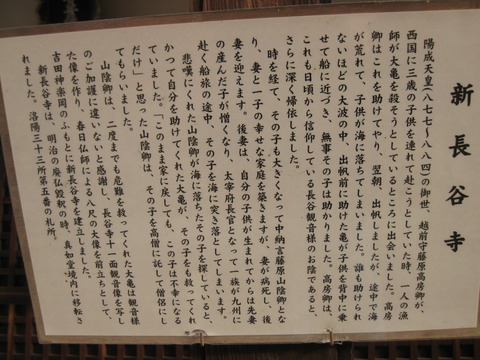 新長谷寺
陽成天皇(八七七~八八四)の御世、越前守藤原高房卿が、
西国に三歳の子供を連れて赴こうとしていた時、一人の漁
師が大亀を殺そうとしているところに出会いました。高房
卿はこれを助けてやり、翌朝、出帆しましたが、途中で海
が荒れて、子供が海に落ちてしまいました。誰も助けられ
ないほどの大波の中、出帆前に助けた亀が子供を背中に乗
せて船に近づき、無事その子は助かりました。高房卿は、
これも日頃から信仰している長谷観音様のお陰であると、
さらに深く帰依しました。
時を経て、その子も大きくなって中納言藤原山陰卿とな
り、妻と一子の幸せな家庭を築きますが、妻が病死し、後
妻を迎えます。後妻は、自分の子供が生まれてからは先妻
の産んだ子が憎くなり、太宰府長官となって一族が九州に
赴く船旅の途中、その子を海に突き落としてしまいます。
悲嘆にくれた山陰卿が海に落ちたその子を探していると、
かつて自分を助けてくれた大亀が、その子をも救ってくれ
ていました。「このまま家に戻しても、この子は不幸になる
だけ」と思った山陰卿は、その子を高僧に託して僧侶にし
てもらいました。
山陰卿は、二度までも危難を救ってくれた大亀は観音様
のご加護に違いないと感謝し、長谷寺十一面観音像を写し
た像を作り、春日仏師による八尺の大像を前立ちとして、
吉田神楽岡のふもとに新長谷寺を建立しました。
新長谷寺は、明治の廃仏毀釈の時、真如堂境内に移転さ
れました。洛陽三十三所第五番の札所。